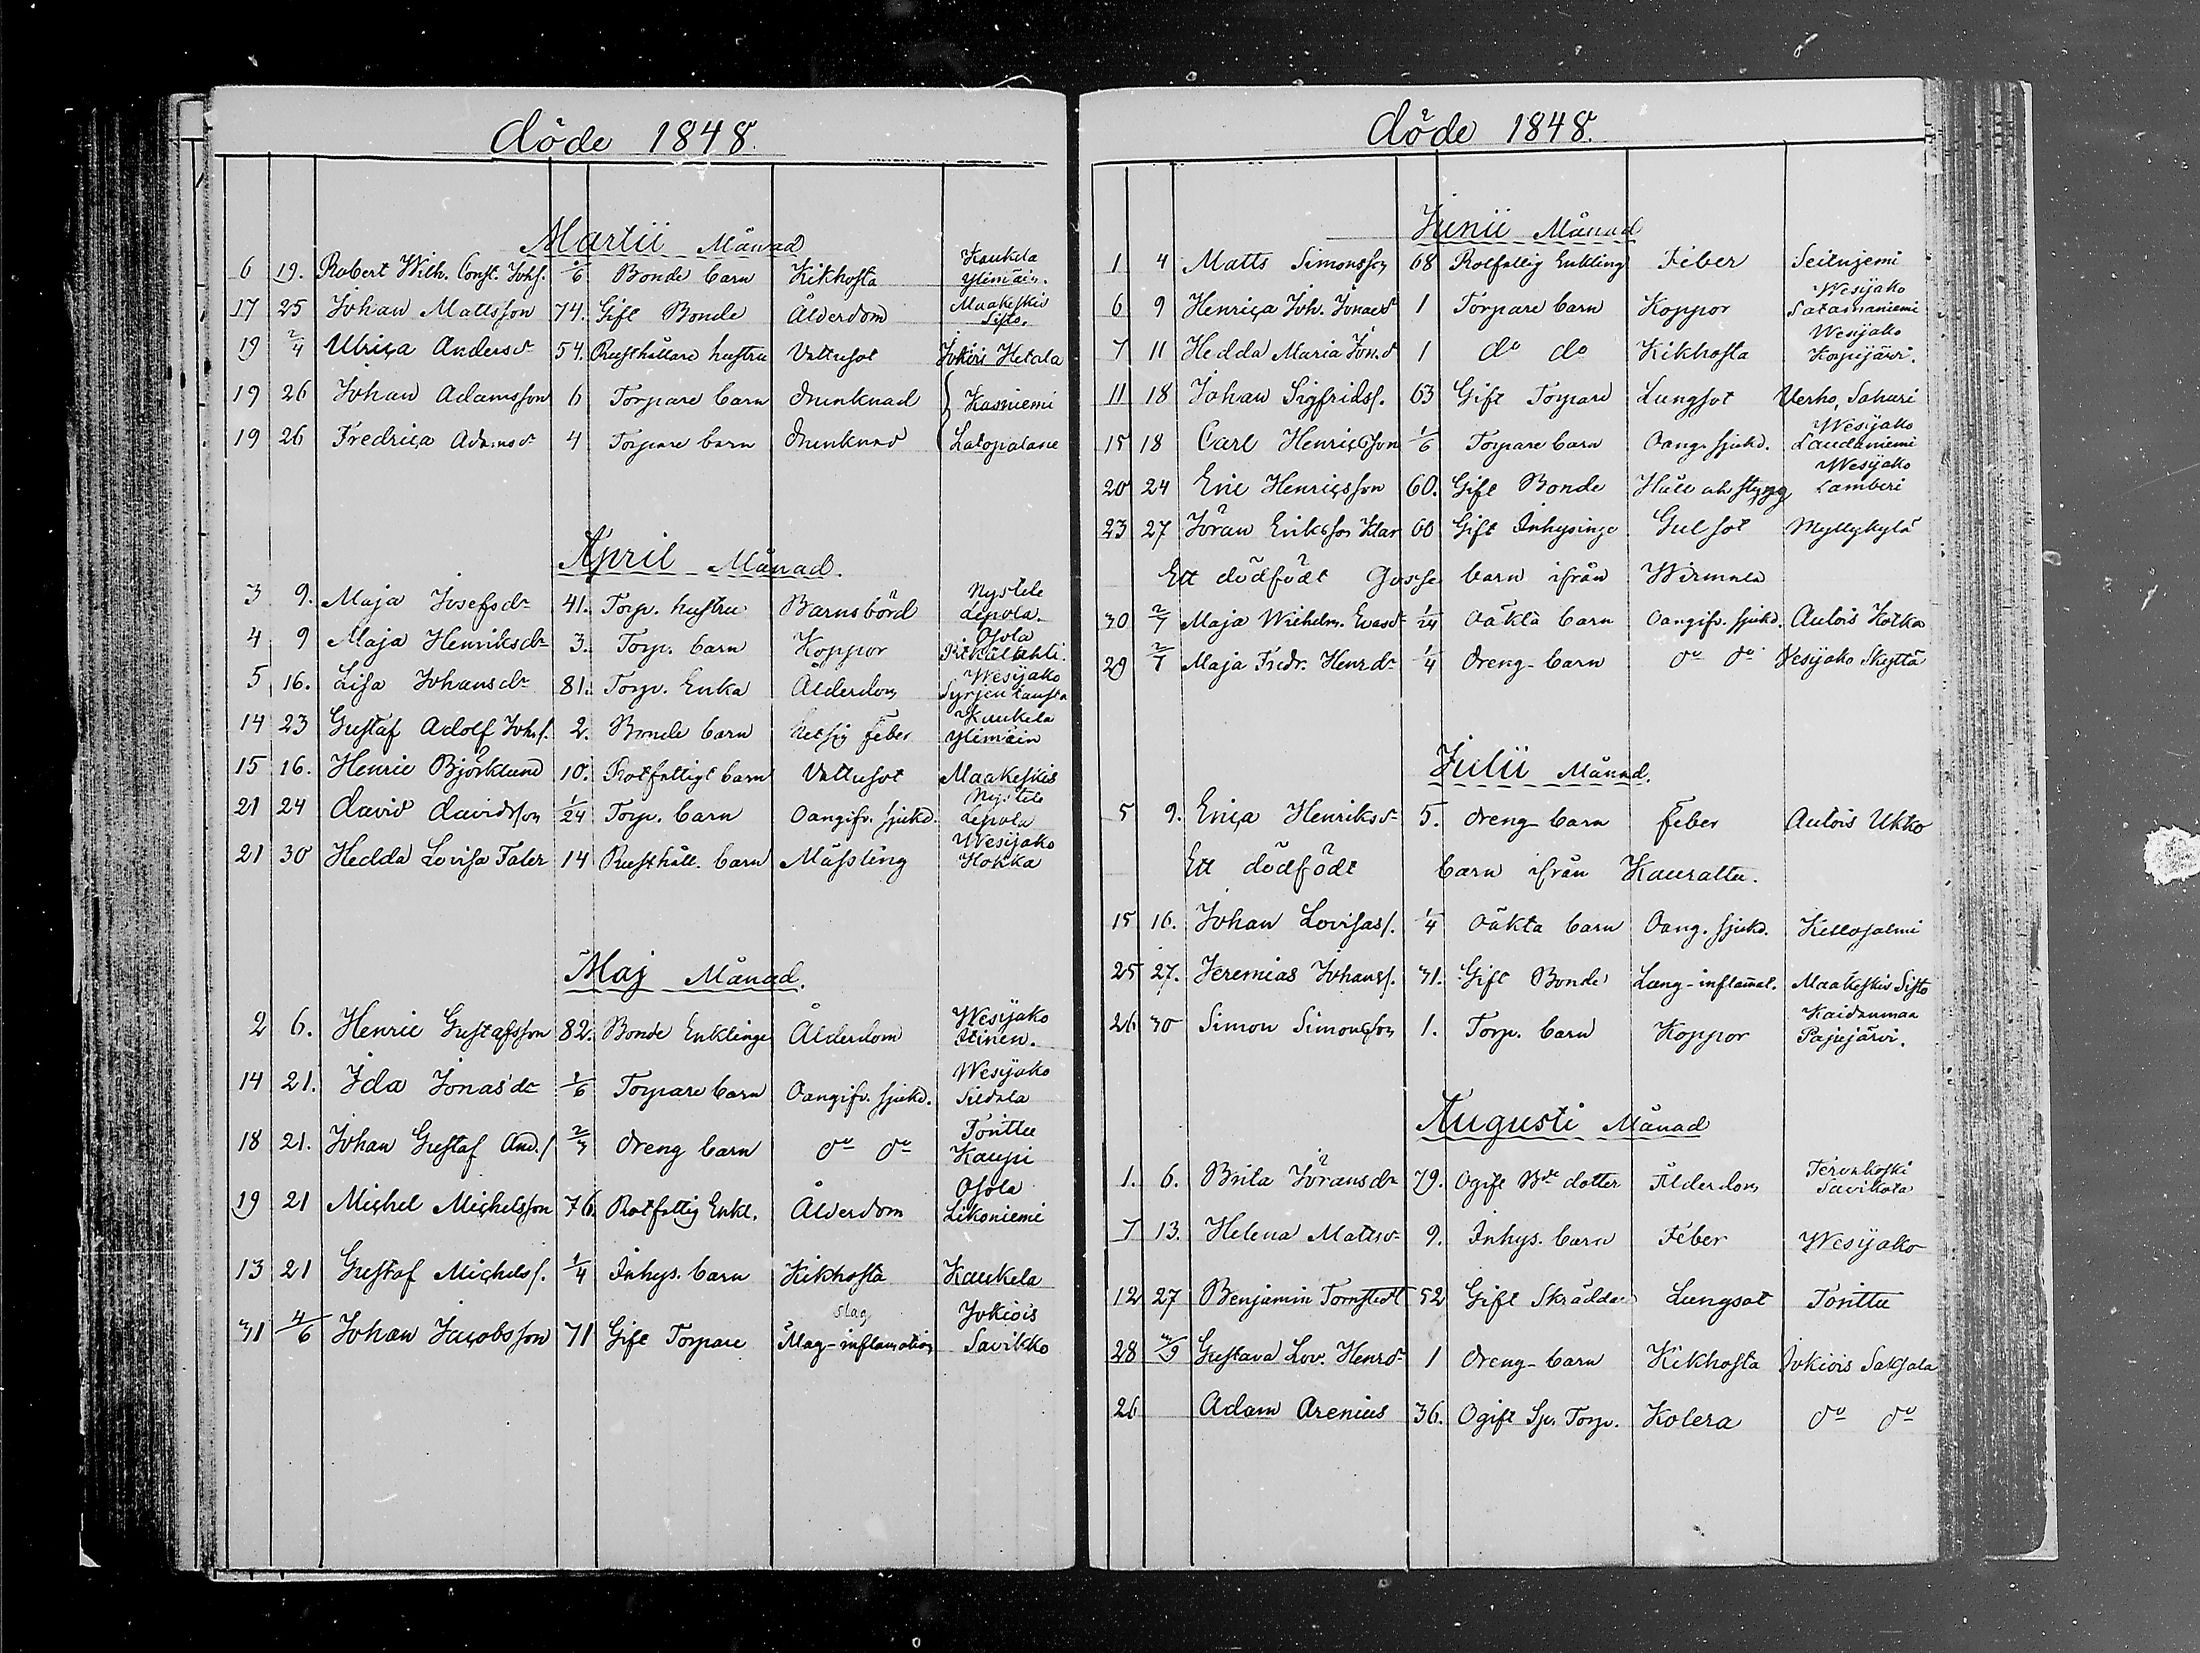 döde 1848.
Martii Månad
6 19. Robert Wilh. Const. Johs. 1/6 Bonde barn Kikhosta Kaukela Ylimäin.
17 25 Johan Mattsson 74. Gift Bonde Ålderdom Maakeskis Sisto.
19 2/4 Ulrica Andersdr 54. Rusthållare hustru Vattusot Jokiois Hetala
19 26 Johan Adamsson 6 Torpare barn drunknad Kasniemi
19 26 Fredrica Adamsdr 4 Torpare barn drunknad Latopalane
April Månad.
3 9. Maja Josefsdr 41. Torp. hustru Barnsbörd Nystele Lepola.
4 9 Maja Henriksdr 3. Torp. barn Koppor Osola Pitkälahti.
5 16. Lisa Johansdr 81. Torp. Enka Ålderdom Wesijako Syrjentausta
14 23 Gustaf Adolf Johs. 2. Bonde barn hetsig feber Kaukela Ylimäin
15 16. Henric Björklund 10. Rotfattigt barn Vattusot Maakeskis
21 24 david davidsson 1/24 Torp. barn Oangifv. sjukd. Nystele Lepola
21 30 Hedda Lovisa Faler 14 Rusthåll. barn Mässling Wesijako Hokka
Maj Månad.
2 6. Henric Gustafsson 82. Bonde Enklinge Ålderdom Wesijako Itinen.
14 21. Ida Jonasdr 1/6 Torpare barn Oangifv. sjukd. Wesijako Sildala
18 21. Johan Gustaf And./ 2/3 dreng barn do do Tonttu Kaupi
19 21 Michel Michelsson 76. Rotfattig Enkl. Ålderdom Osola Likoniemi
13 21 Gustaf Michels/. 1/4 Inhys. barn Kikhosta Kaukela
slag
31 4/6 Johan Jacobsson 71 Gift Torpare Mag-inflamation Jokiois Savikko
döde 1848.
Junii Månad
1 4 Matts Simonsson 68 Rotfattig Enkling Feber Seitniemi
6 9 Henrica Joh. Jonaed 1 Torpare barn Koppor Wesijako Satamaniemi
7 11 Hedda Maria Jon.d 1 do do Kikhosta Wesijako Korpijärvi.
11 18 Johan Sigfrids/. 63 Gift Torpare Lungsot Verho, Sahari
15 18 Carl Henricsson 1/6 Torpare barn Oang. sjukd. Wesijako Laudaniemi
20 24 Eric Henricsson 60. Gift Bonde Håll och stygg Wesijako Lamberi
23 27 Jöran Eriksson Klar 60 Gift Inhysinge Gulsot Myllykylä
Ett dödfödt Gosse barn ifrån Wirmala
30 2/7 Maja Wilhelm. Evasd. 1/24 Oäkta barn Oangifv. sjukd. Autois Kotka
29 2/7 Maja Fredr. Henrdr 1/4 dreng-barn do do Vesijako Skyttä
Julii Månad.
5 9. Erica Henriksd. 5. dreng-barn feber Autois Ukko
Ett dödfödt barn ifrån Kaurattu.
15 16. Johan Lovisas/. 1/4 Oäkta barn Oang. sjukd. Kellosalmi
25 27. Jeremias Johans/. 31. Gift Bonde Lung-inflamat. Maakeskis Sisto
26 30 Simon Simonsson 1. Torp. barn Koppor Kaidanmaa Pajujärvi.
Augusti Månad
1. 6. Brita Jöransdr 79. Ogift Bde dotter Ålderdom Torvikoski Savikota
7 13. Helena Mattsd. 9. Inhys. barn Feber Wesijako
12 27 Benjamin Tornstedt 52 Gift Skräddare Lungsot Tonttu
28 3/9 Gustava Lov. Henrd. 1 dreng-barn Kikhosta Jokiois Saksala
26 Adam Arenius 36. Ogift Torp. Kolera do do